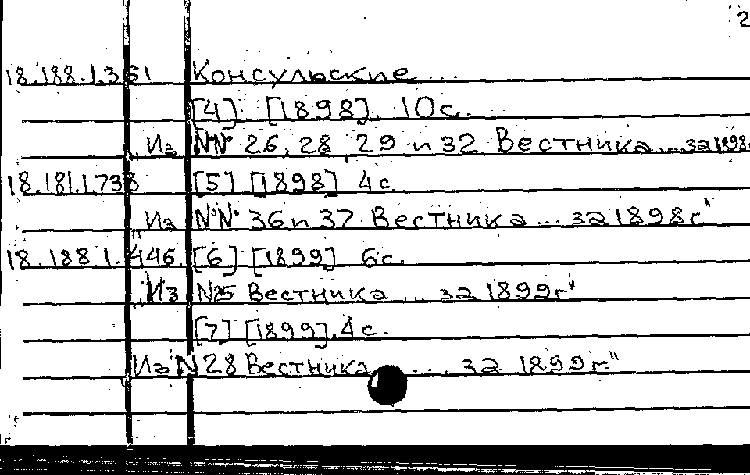 2
18.188.1.361 Консульские ...
[4] [1898] 10с.
„Из №№ 26, 28, 29 и 32 Вестника ... за 1898г
18.181.1.738 [5] [1898] 4с.
„Из №№ 36 и 37 Вестника ... за 1898г"
18.188.1.446 [6] [1899] 6с.
„Из №25 Вестника ... за 1899г"
[7] [1899] 4с.
„Из N 28 Вестника ... за 1899г"